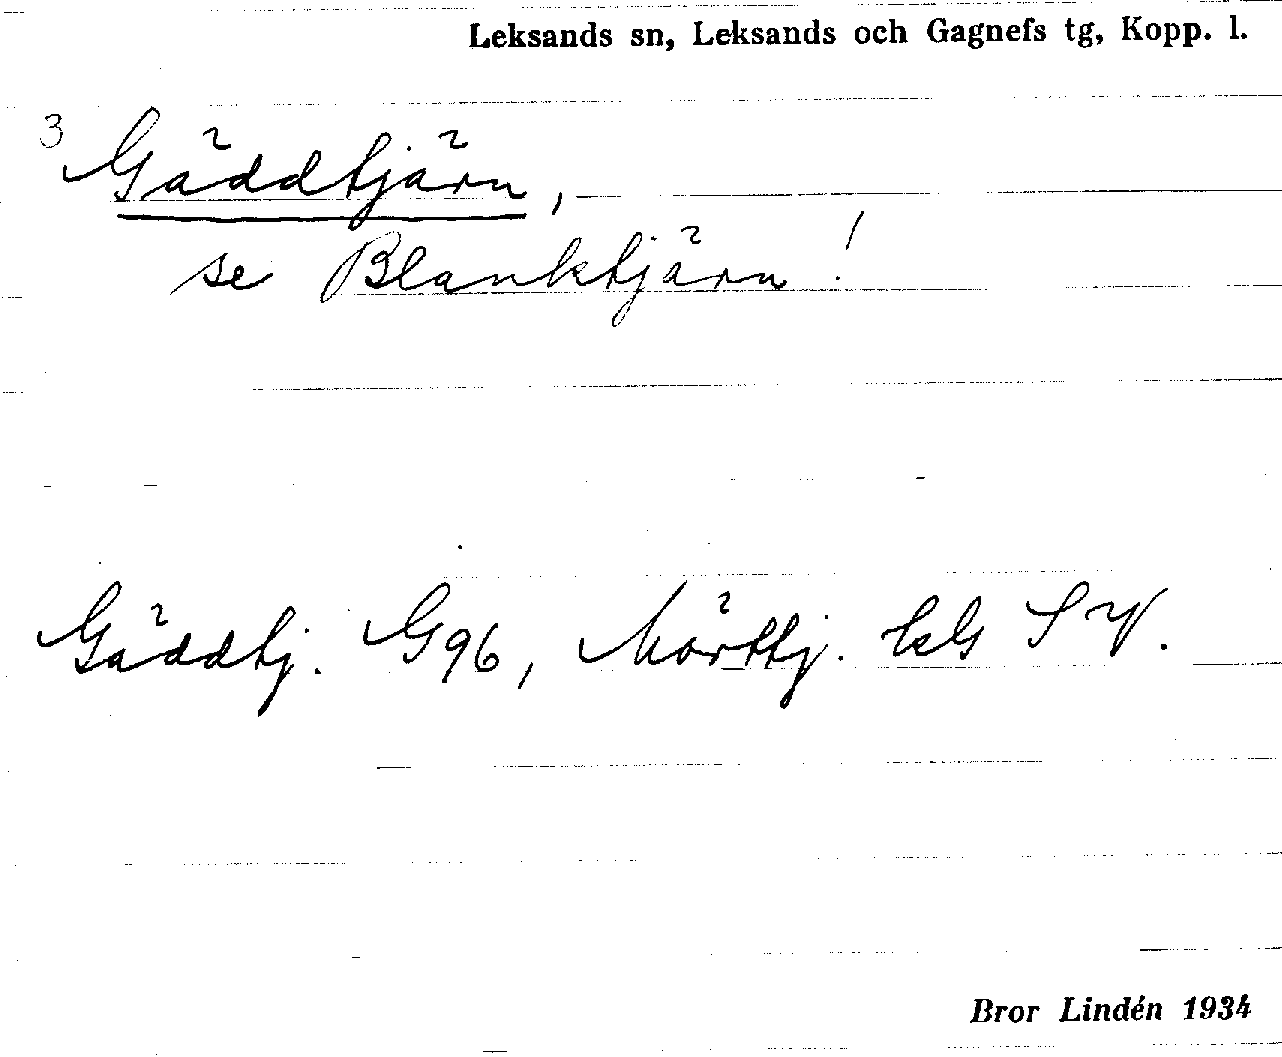 Leksands sn, Leksands och Gagnefs tg, Kopp. l.
3 Gäddtjärn,
se Blanktjärn!
Gäddtj. G96, Mörttj. SV.
Bror Lindén 1934